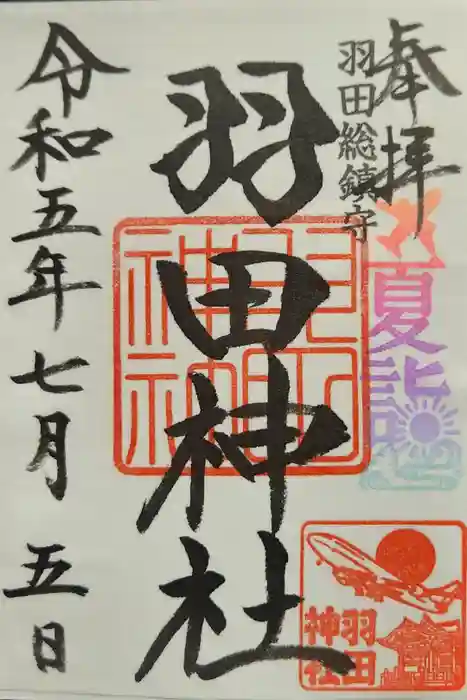 奉拝
羽田総鎮守
夏詣
羽田神社
羽田神社
羽田
神社
令和五年七月五日